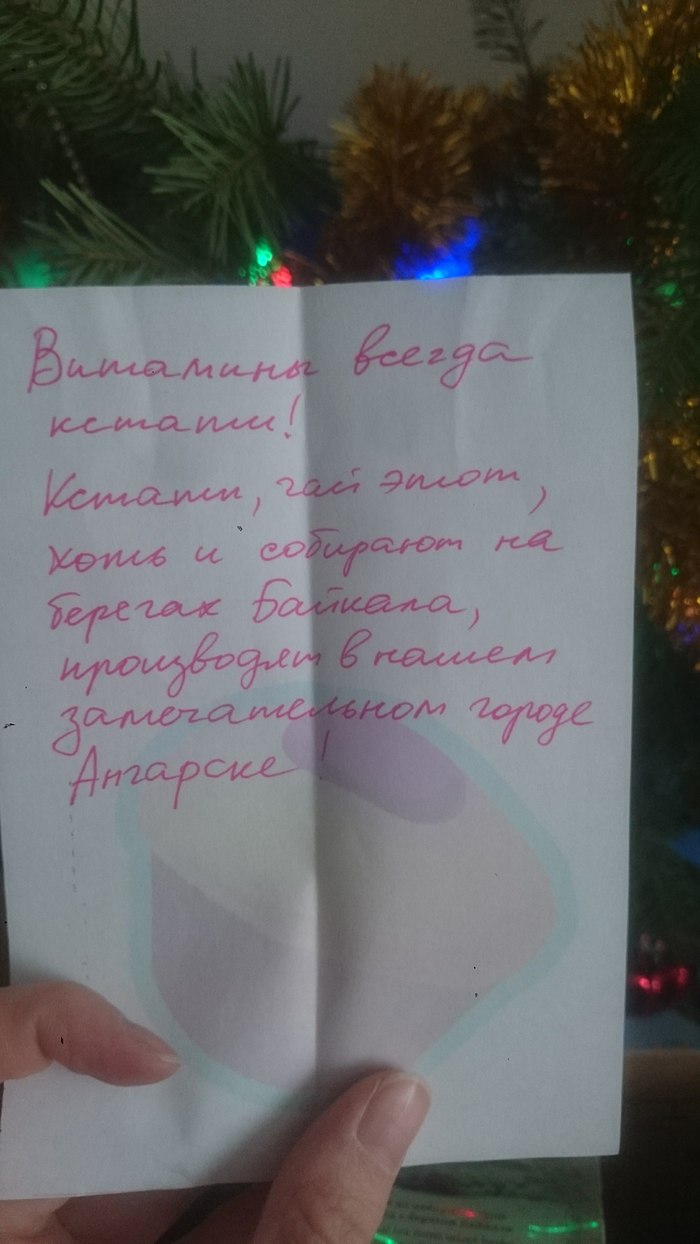 Витамины всегда
кстати!
Кстати, чай этот,
хоть и собирают на
берегах Байкала,
производят в нашем
замечательном городе
Ангарске!